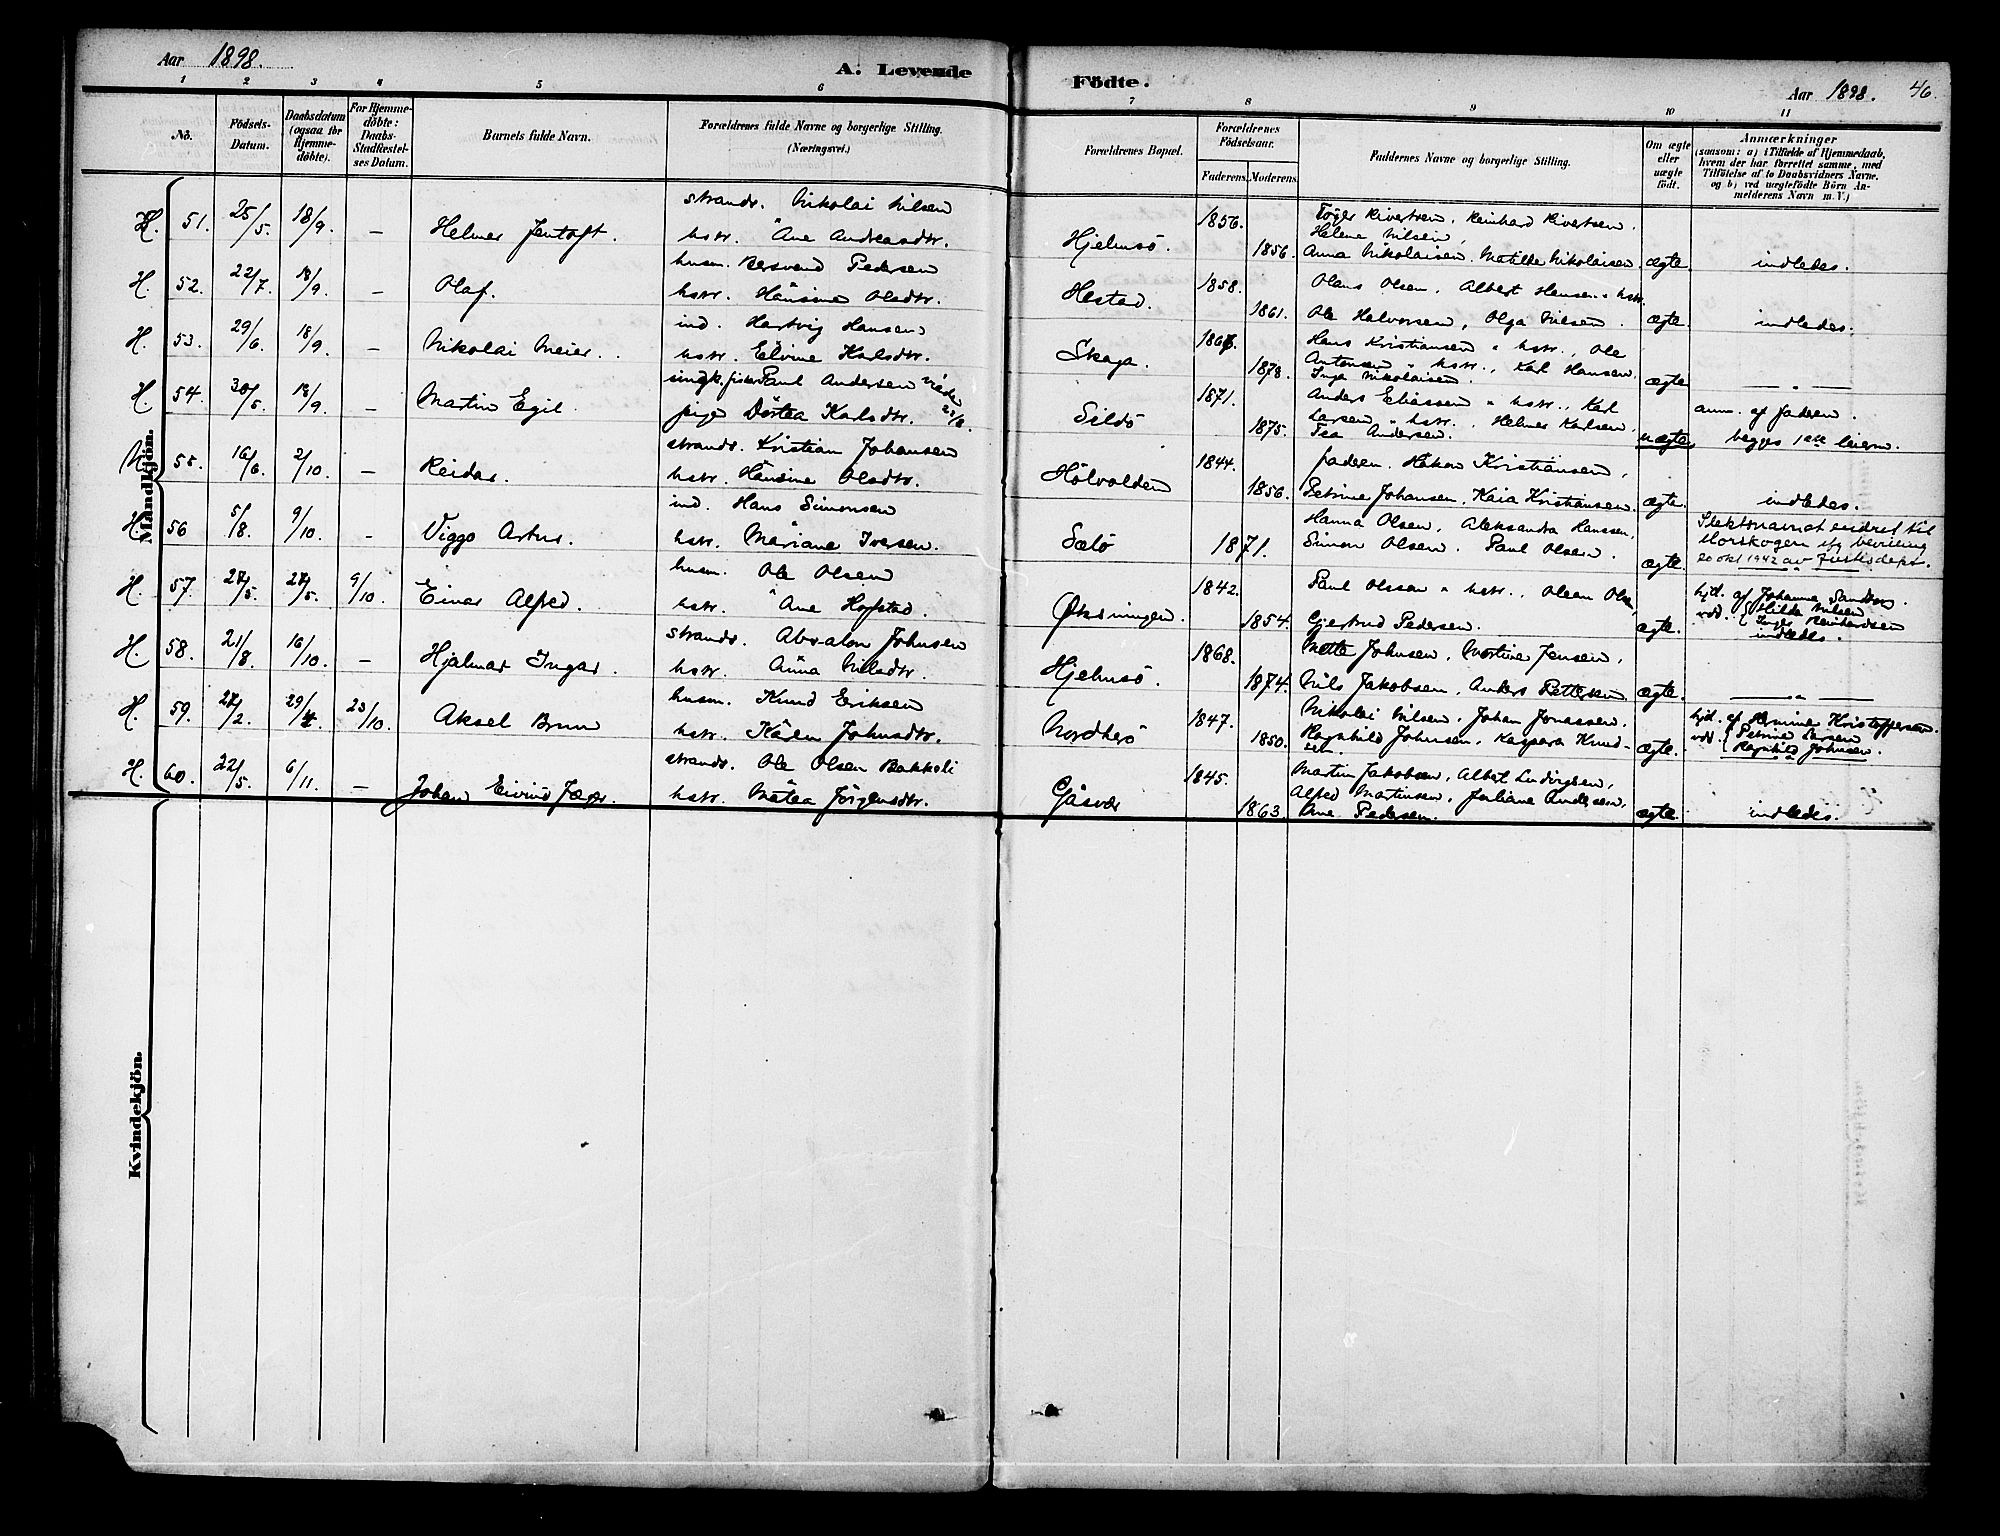 Aar 1898.
A. Levende
Födte.
Aar 1898. 46.
1 2 3 4 5 6 7 8 9 10 11
No.
Födsels-Datum.
Daabsdatum (ogsaa for Hjemme-döbte).
For Hjemme-döbte: Daabs-Stadfæstel-ses Datum.
Barnets fulde Navn.
Forældrenes fulde Navne og borgerlige Stilling. (Næringsvei.)
Forældrenes Bopæl.
Forældrenes Födselsaar.
Faderens. Moderens.
Faddernes Navne og borgerlige Stilling.
Om ægte eller uægte födt.
Anmærkninger
(saasom: a) i Tilfælde af Hjemmedaab, hvem der har forrettet samme, med Tilföielse af to Daabsvidners Navne. og b) ved uægtefödte Börn An-melderens Navn m. V.)
Mandkjön.
H. 51. 25/5. 18/9. – Helmer Jentoft. strands. Nikolai Nilsen
hstr. Ane Andreasdtr. Hjelmsö. 1856. 1856. Töger Sivertsen. Reinhard Sivertsen. Helene Nilsen, Anna Nikolaisen. Matilde Nikolaisen. ægte. indledes.
H. 52. 22/7. 18/9. – Olaf. husm. Bersvend Pedersen
hstr. Hansine Olsdtr. Hestad. 1858. 1861. Olaus Olsen. Albert Hansen " hstr. Ole Halvorsen, Olga Nilsen. ægte. indledes.
H. 53. 29/6. 18/9. – Nikolai Meier. ind. Hartvig Hansen
hstr. Elvine Karlsdtr. Skaga. 1867. 1878. Hans Kristiansen " hstr., Ole Antonsen " hstr., Karl Hansen. Inga Nikolaisen. ægte. — " —
H. 54. 30/5. 18/9. – Martin Egil. ungk. fisker Paul Andersen
pige Dortea Karlsdtr. Sildö 1871. 1875. Anders Eliassen " hstr., Karl Larsen " hstr., Helmer Karlsen, Tea Andersen. uægte anm. af faderen. begges 1ste leierm.
55. 16/6. 2/10. – Reidar. strands. Kristian Johansen
hstr. Hansine Olsdtr. Hölvolden 1844. 1856. faderen. Hakon Kristiansen, Petrine Johansen, Kaia Kristiansen. ægte. indledes.
H. 56 5/8. 9/10. – Viggo Artur. ind. Hans Simonsen
hstr. Mariane Iversen. Sælö 1871. Hanna Olsen, Aleksandra Hanssen, Simon Olsen. Paul Olsen. ægte. Slektsnavnet endret til Norskogen ifg bevilling 20 okt 1942 av Justisdept.
H. 57. 27/5. 27/5. 9/10. Einar Alfred. husm. Ole Olsen
hstr. Ane Hofstad. Öksningen. 1842. 1854. Paul Olsson " hstr., Olsen Gjertrud Pedersen. ægte. hjd. af Johanna vdd. Hilda Nilsen Inger Reinhardsen indledes.
H. 58. 21/8. 16/10. – Hjalmar Ingar. strands. Absalon Johnsen
hstr. Anna Nilsdtr. Hjelmsö. 1868. 1874. Mette Johnsen, Martine Jensen, Nils Jakobsen, Anders Pettersen ægte. — " —
H. 59. 27/2. 29/4. 23/10. Aksel Brun husm. Knud Eriksen
hstr. Karen Johnsdtr. Nordherö 1847. 1850. Nikolai Nilsen, Johan Jonassen, Ragnhild Johnsen, Kaspara Knudsen. ægte. hjd. af Hermine Kristoffersen vdd. Petrine Larsen Ragnhild Johnsen.
H. 60. 22/5. 6/11. – Johan Eivind Jæger. strands. Ole Olsen Bakkeli
hstr. Matea Jörgensdtr. Gåsvær 1845. 1863. Martin Jakobsen, Albert Ludvigsen, Alfred Martinsen, Juliane Andersen, Ane Pedersen. ægte. indledes.
Kvindekjön.